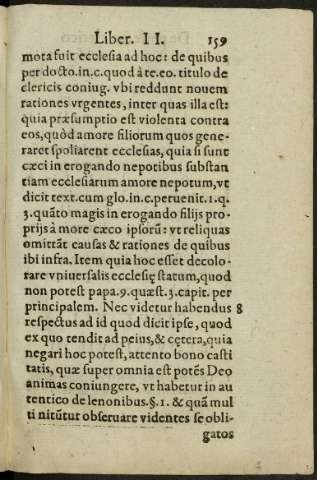 Liber. II. 159
mota fuit ecclesia ad hoc: de quibus
per docto.in.c.quod à te.eo.titulo de
clericis coniug. vbi reddunt nouem
rationes vrgentes, inter quas illa est:
quia præsumptio est violenta contra
eos, quòd amore filiorum quos gene-
raret spoliarent ecclesias, quia si sunt
cæci in erogando nepotibus substan
tiam ecclesiarum amore nepotum, vt
dicit text.cum glo.in c.peruenit.1.q.
3.quãto magis in erogando filijs pro-
prijs à more cæco ipsorũ: vt reliquas
omittãt causas & rationes de quibus
ibi infra. Item quia hoc esset decolo-
rare vniuersalis ecclesię statum, quod
non potest papa.9.quæst.3.capit. per
principalem. Nec videtur habendus 8
respectus ad id quod dicit ipse, quod
ex quo tendit ad peius, & cętera, quia
negari hoc potest, attento bono casti
tatis, quæ super omnia est potẽs Deo
animas coniungere, vt habetur in au
tentico de lenonibus.§.1. & quã mul
ti nitũtur obseruare videntes se obli-
gatos